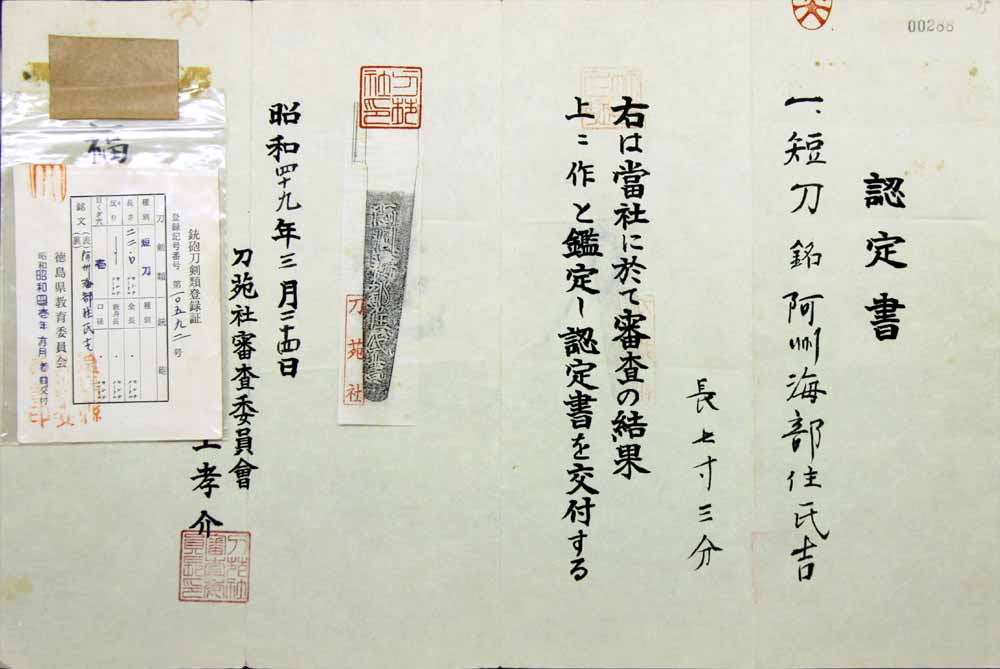 00288
認定書
一、短刀 銘 阿州海部住氏吉
長 七寸三分
右は當社に於て審査の結果
上々作と鑑定し認定書を交付する
刀苑社印
刀苑社
昭和四十九年三月二十四日
刀苑社審査委員會
孝介
福
銃砲刀剣類登録証
登録記号番号 第一〇五九二号
刀剣類
銃砲
種別 短刀
種別
長さ 二二・〇
全長
反り
銃身長
目くぎ穴 壱
口径
銘文(表)阿州海部住氏吉
(裏)
徳島県教育委員会